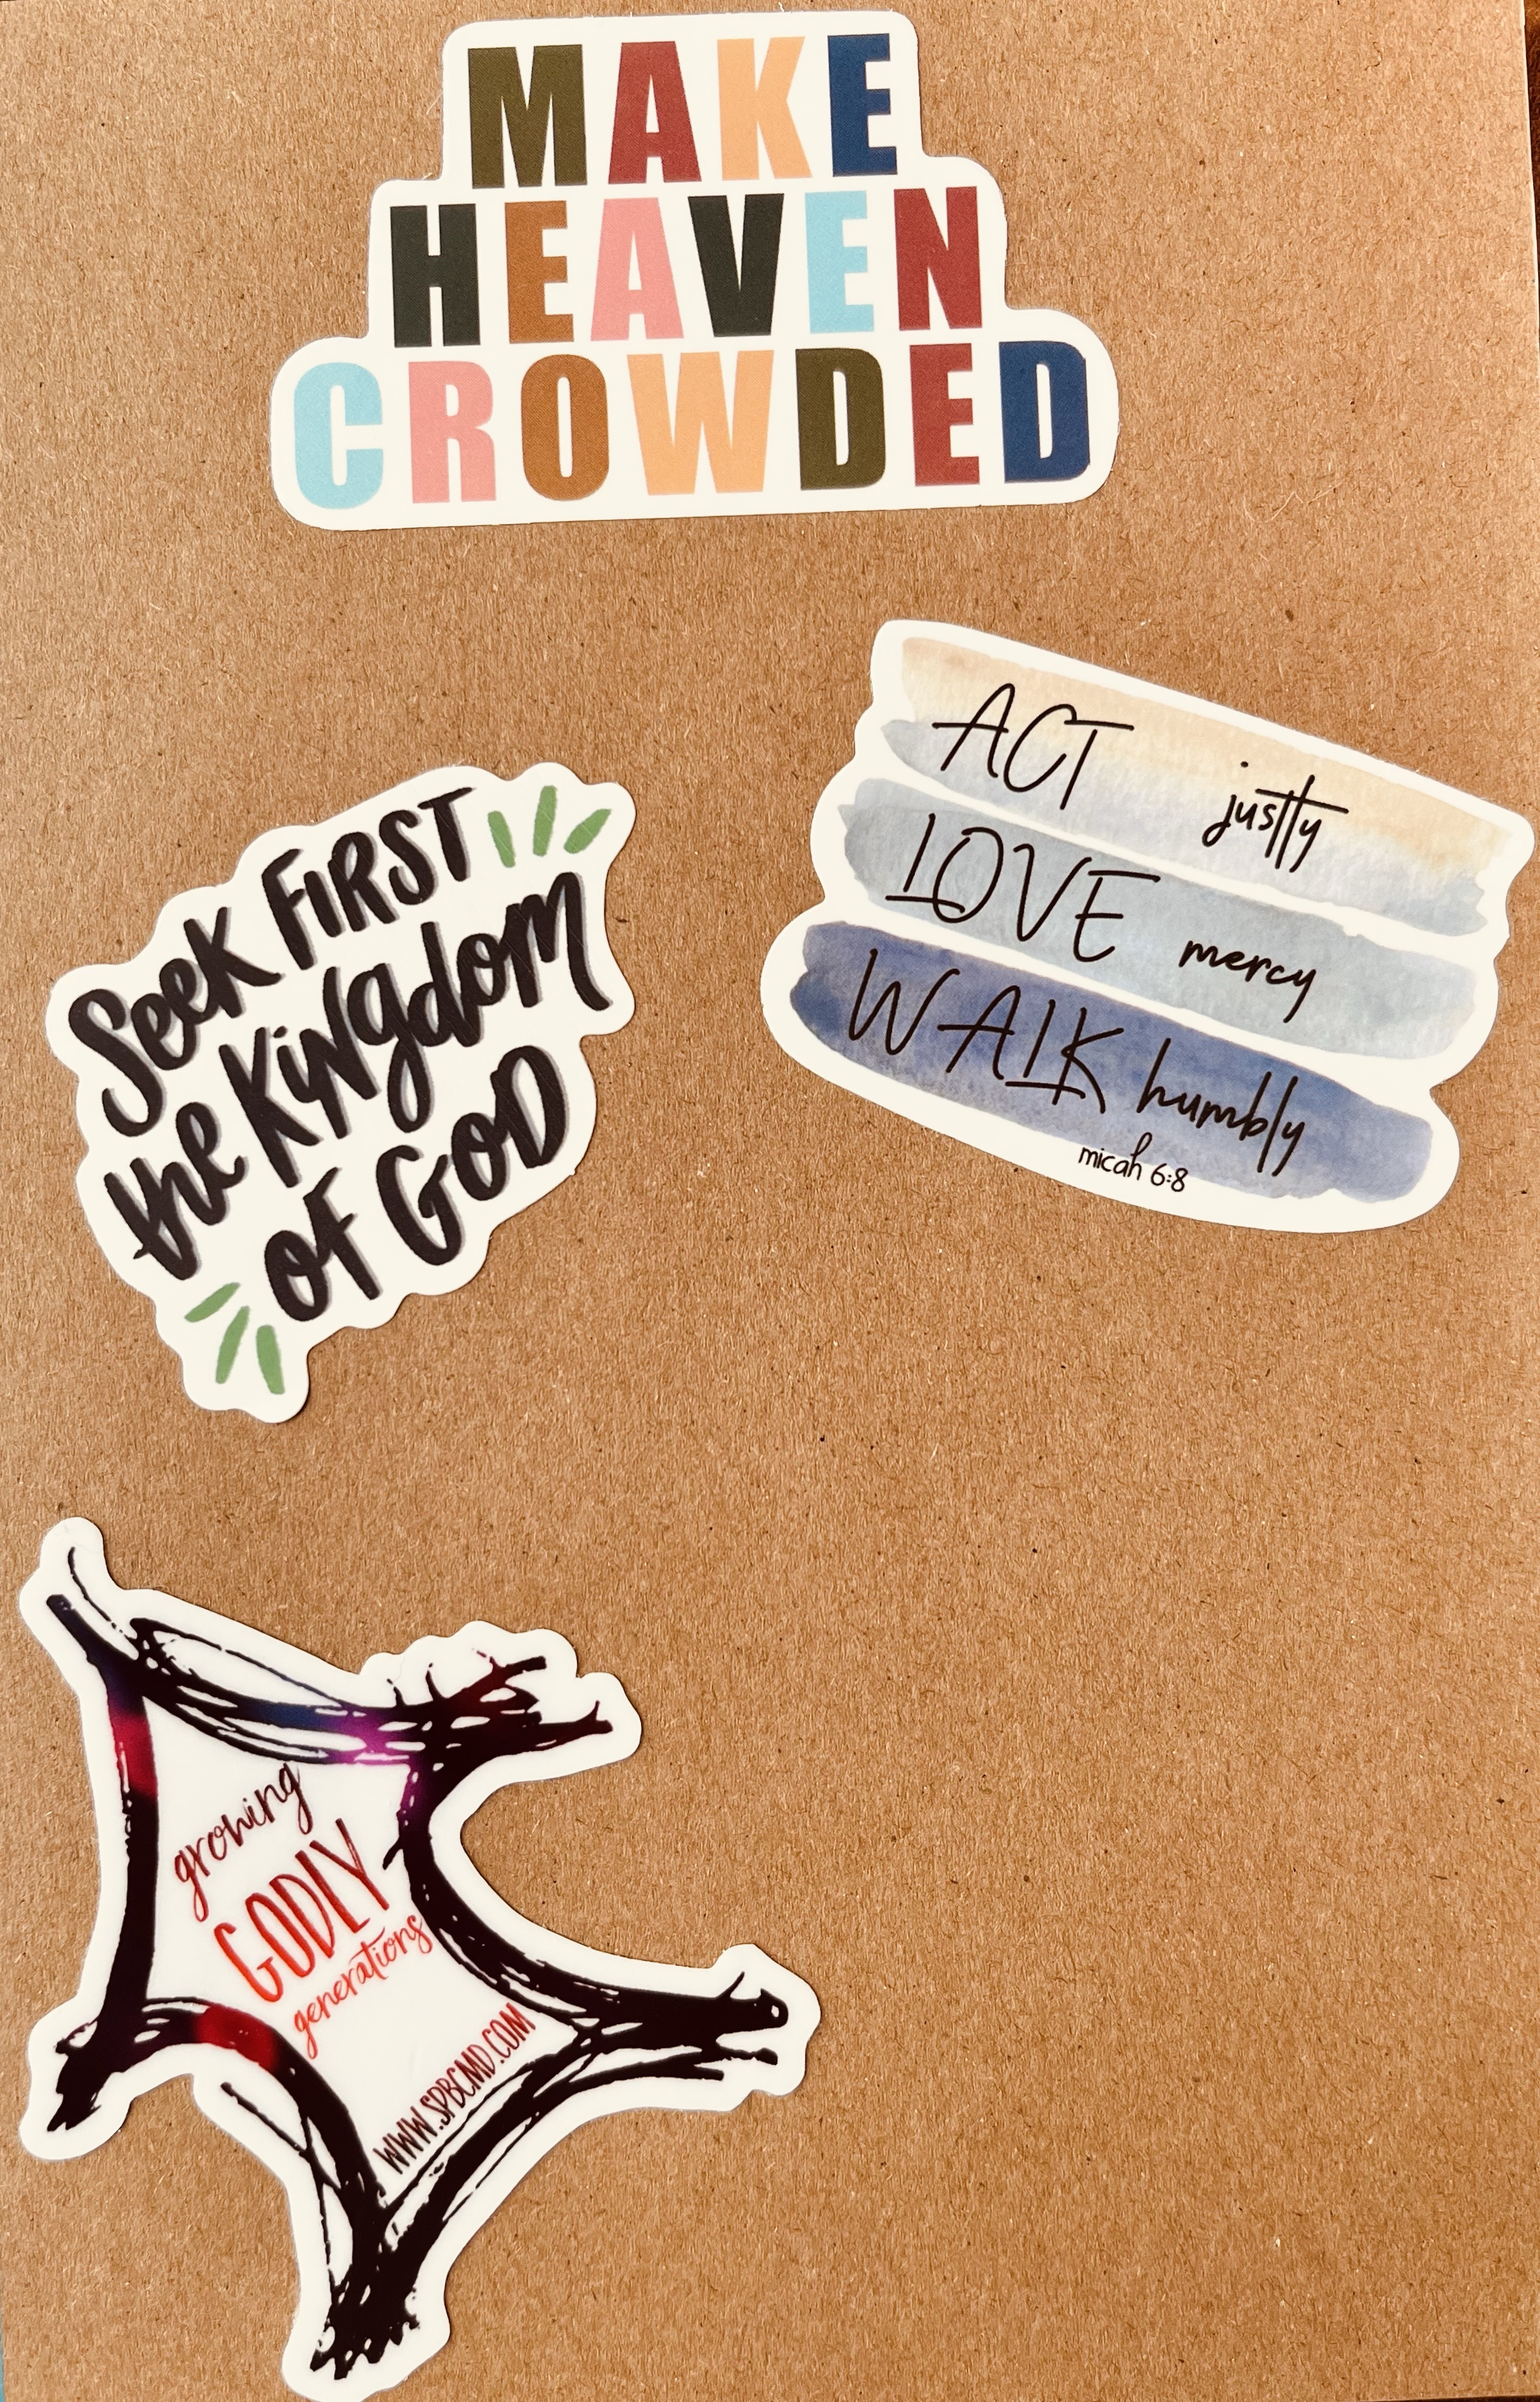 MAKE
HEAVEN
CROWDED
ACT justly
LOVE mercy
WALK humbly
micah 6:8
Seek FIRST
the Kingdom
of GOD
growing
GODLY
generations
WWW.SPBCMD.COM